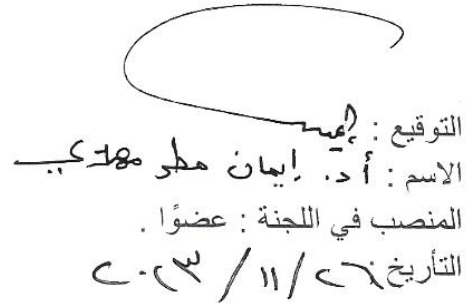 التوقيع :
الاسم : أ.د. إيمان مطر مهدي
المنصب في اللجنة : عضوًا .
التأريخ : ٢٦ / ١١ / ٢٠٢٣